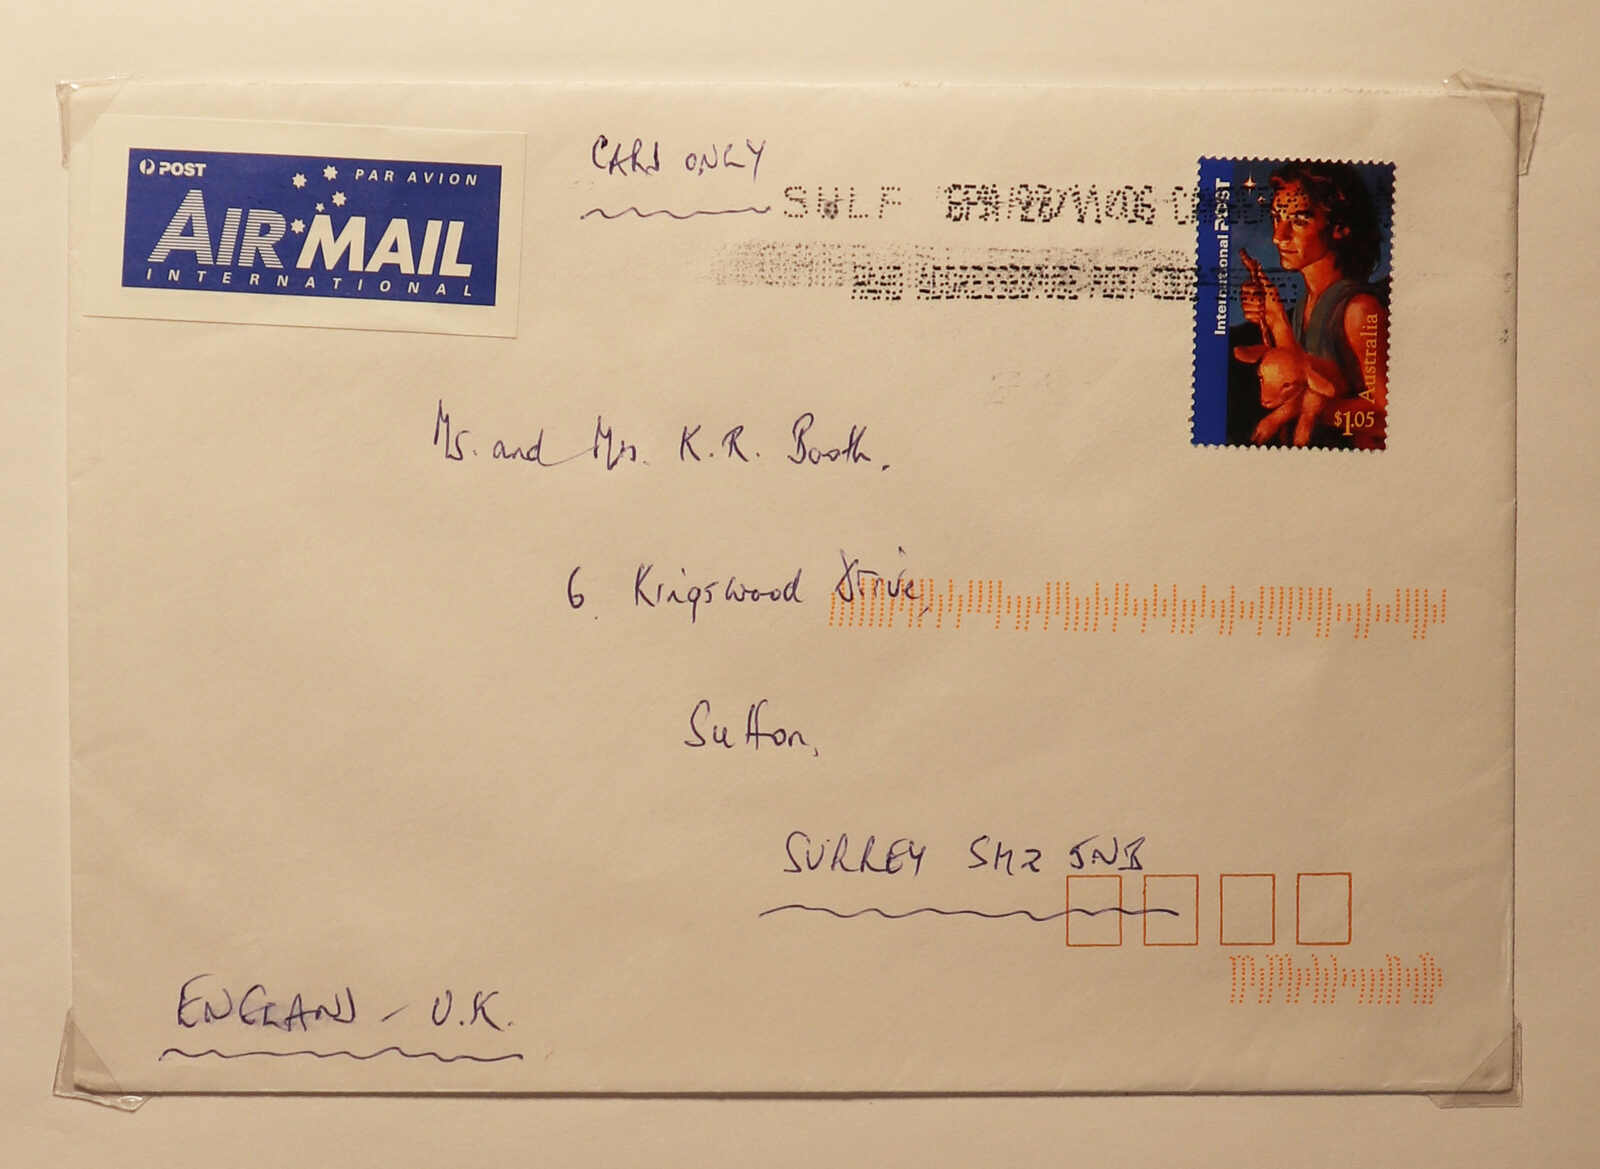 POST
PAR AVION
AIR MAIL
INTERNATIONAL
CARD ONLY
SWLF 6PM/28/11/06
International POST
Australia
$1.05
Mr. and Mrs. K. R. Booth,
6 Kingswood Drive,
Sutton,
SURREY SM2 5NB
ENGLAND - U.K.